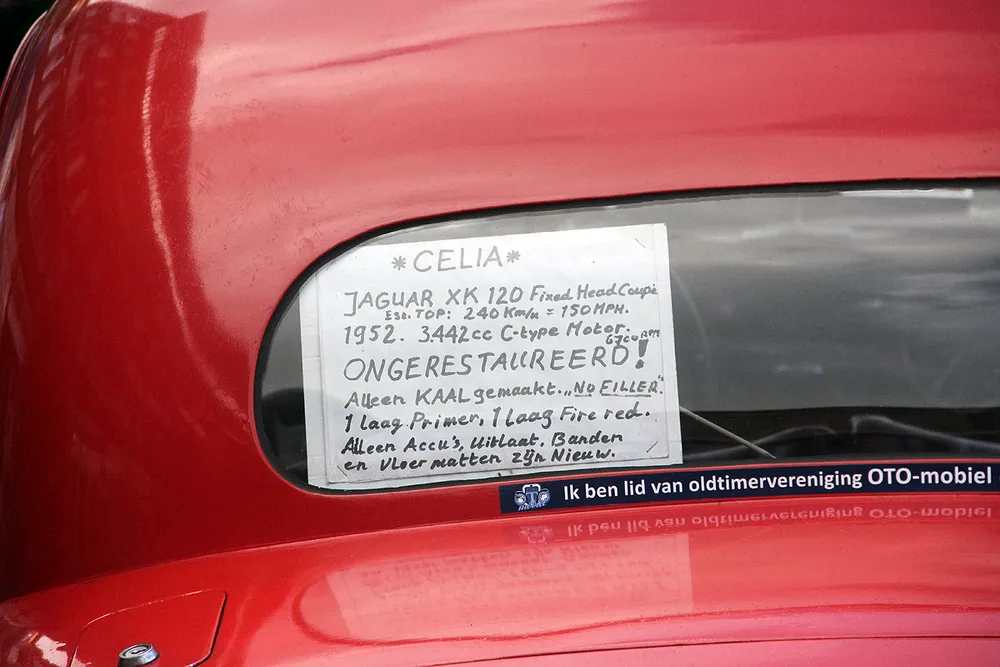 *CELIA*
JAGUAR XK 120 Fixed Head Coupé
Est. TOP: 240 Km/h = 150 MPH.
1952. 3.442cc C-type Motor.
6700 RPM
ONGERESTAUREERD!
Alleen KAAL gemaakt. „NO FILLER".
1 laag Primer, 1 laag Fire red.
Alleen Accu's, Uitlaat, Banden
en Vloermatten zijn Nieuw.
Ik ben lid van oldtimervereniging OTO-mobiel